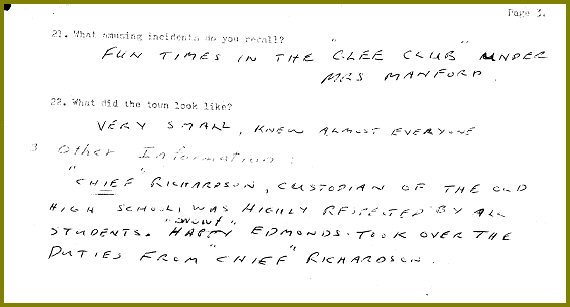 Page 3.
21. What amusing incidents do you recall?
FUN TIMES IN THE "GLEE CLUB" UNDER
MRS MANFORD.
22. What did the town look like?
VERY SMALL, KNEW ALMOST EVERYONE
3 Other Information:
"CHIEF" RICHARDSON, CUSTODIAN OF THE OLD
HIGH SCHOOL, WAS HIGHLY RESPECTED BY ALL
STUDENTS. HAPPY EDMONDS. TOOK OVER THE
DUTIES FROM "CHIEF" RICHARDSON.